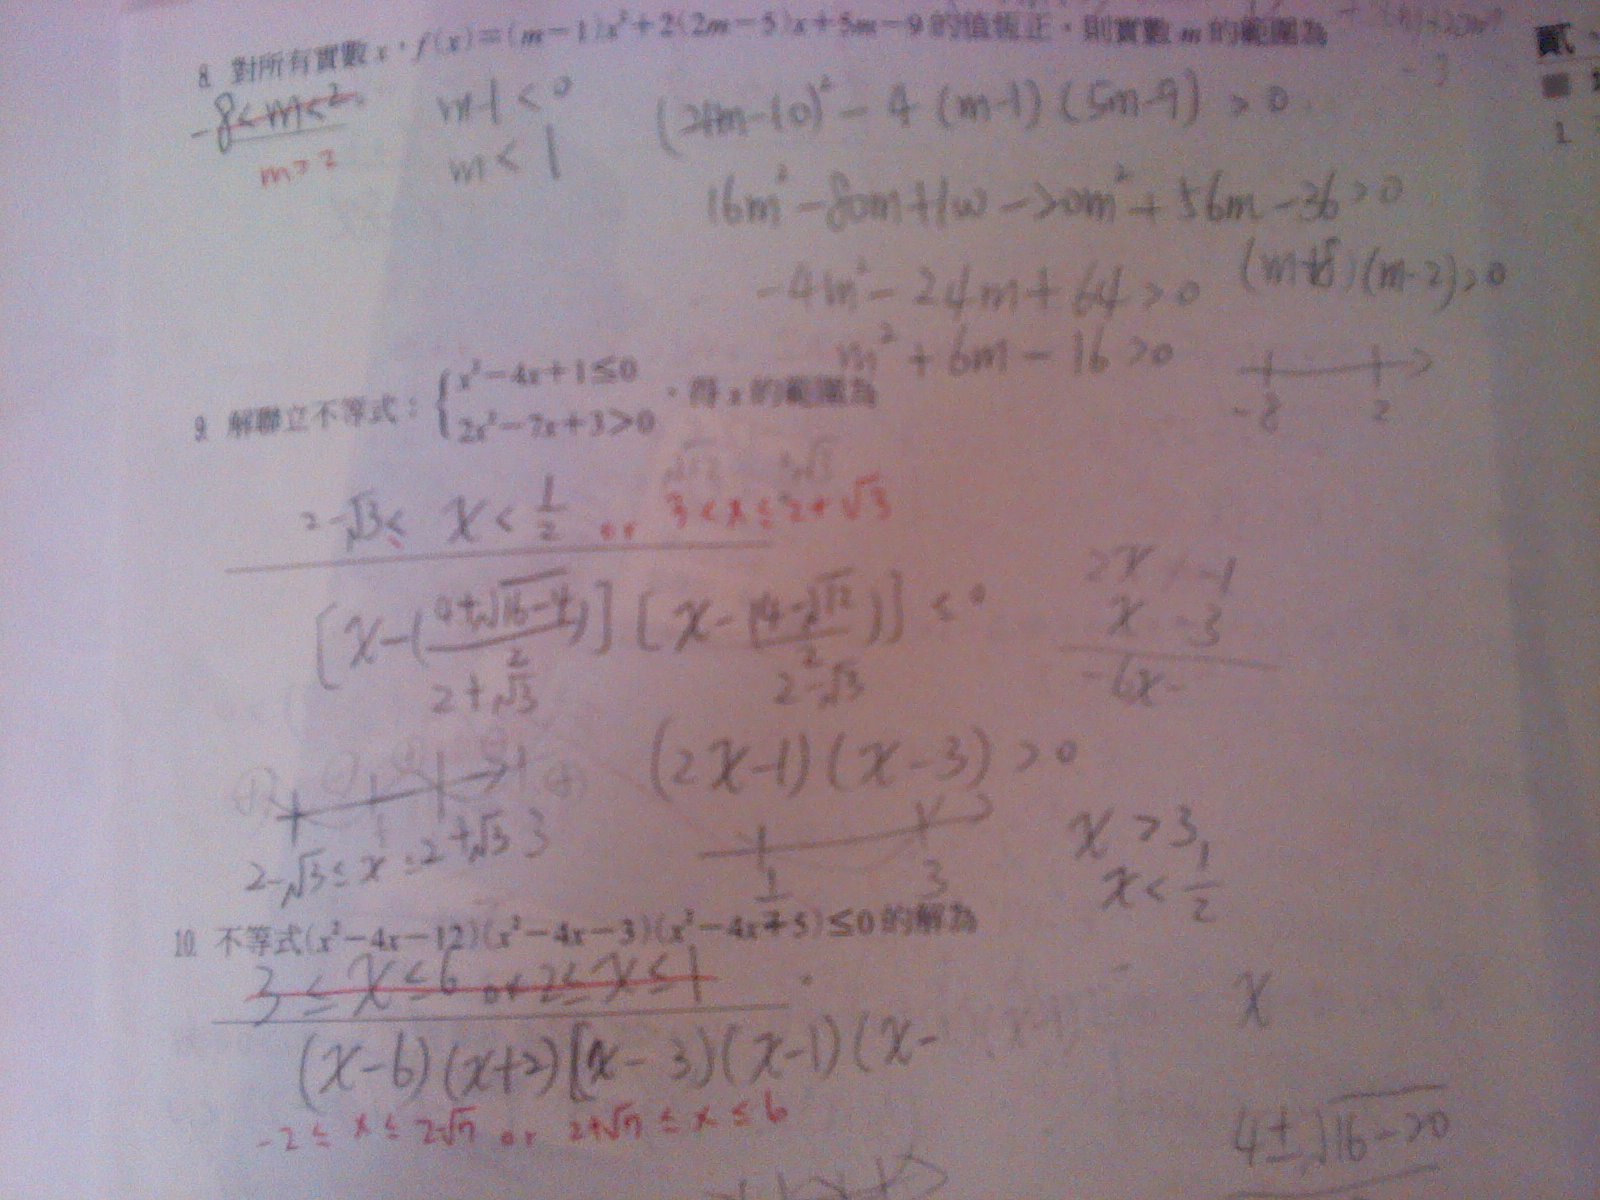 貳、
8. 對所有實數 x，f(x)=(m−1)x²+2(2m−5)x+5m−9 的值恆正，則實數 m 的範圍為
1
-8<m<2
m>2
m-1<0
m<1
(4m-10)²-4(m-1)(5m-9)>0
16m²-80m+100-20m²+56m-36>0
-4m²-24m+64>0
(m+8)(m-2)>0
m²+6m-16>0
-8 2
9. 解聯立不等式：{x²−4x+1≤0
2x²−7x+3>0，得 x 的範圍為
2-√3≤ x<1/2 or 3<x≤2+√3
[x-(4+√16-4/2)][x-(4-√12/2)]≤0
2+√3 2-√3
2x -1
x -3
-6x-
(2x-1)(x-3)>0
2-√3≤x≤2+√3 3
1/2 3
x>3,
x<1/2
10. 不等式(x²−4x−12)(x²−4x−3)(x²−4x+5)≤0 的解為
3≤x≤6 or 2≤x≤1
(x-6)(x+2)[(x-3)(x-1)(x-
-2≤x≤2√7 or 2+√7≤x≤6
x
4±√16-20